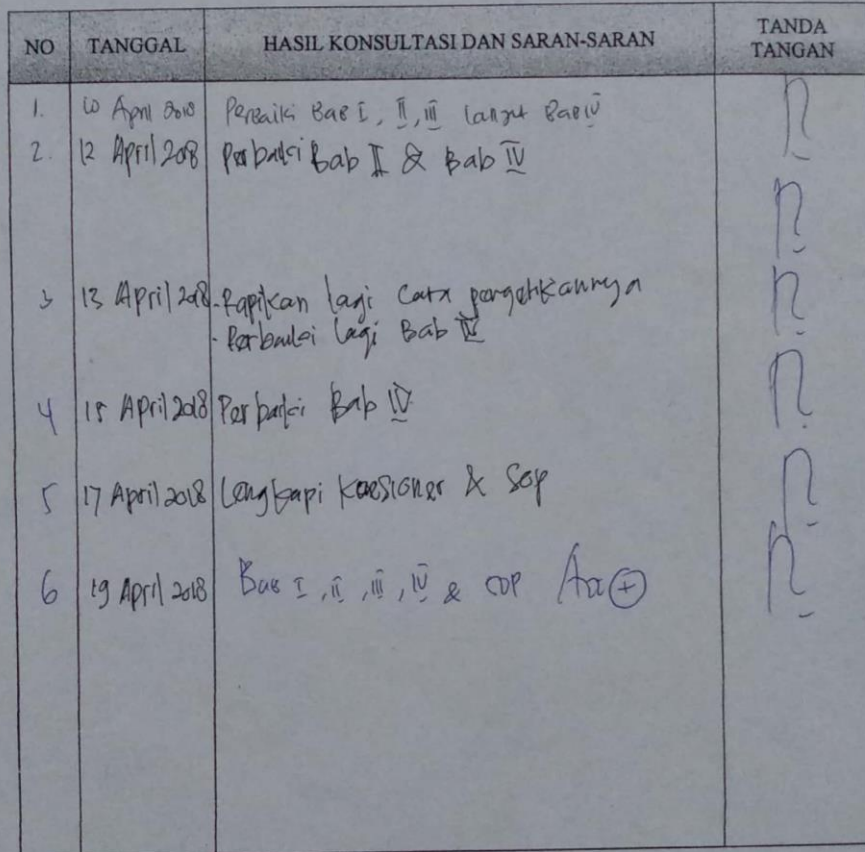 NO TANGGAL HASIL KONSULTASI DAN SARAN-SARAN TANDA TANGAN
1. 10 April 2018 Perbaiki Bab I, II, III lanjut Bab IV
2. 12 April 2018 Perbaiki Bab II & Bab IV
3 13 April 2018 - Rapikan lagi cara pengetikannya
- Perbaiki lagi Bab IV
4 15 April 2018 Perbaiki Bab IV
5 17 April 2018 Lengkapi Koesioner & Sop
6 19 April 2018 Bab I, II, III, IV & COP